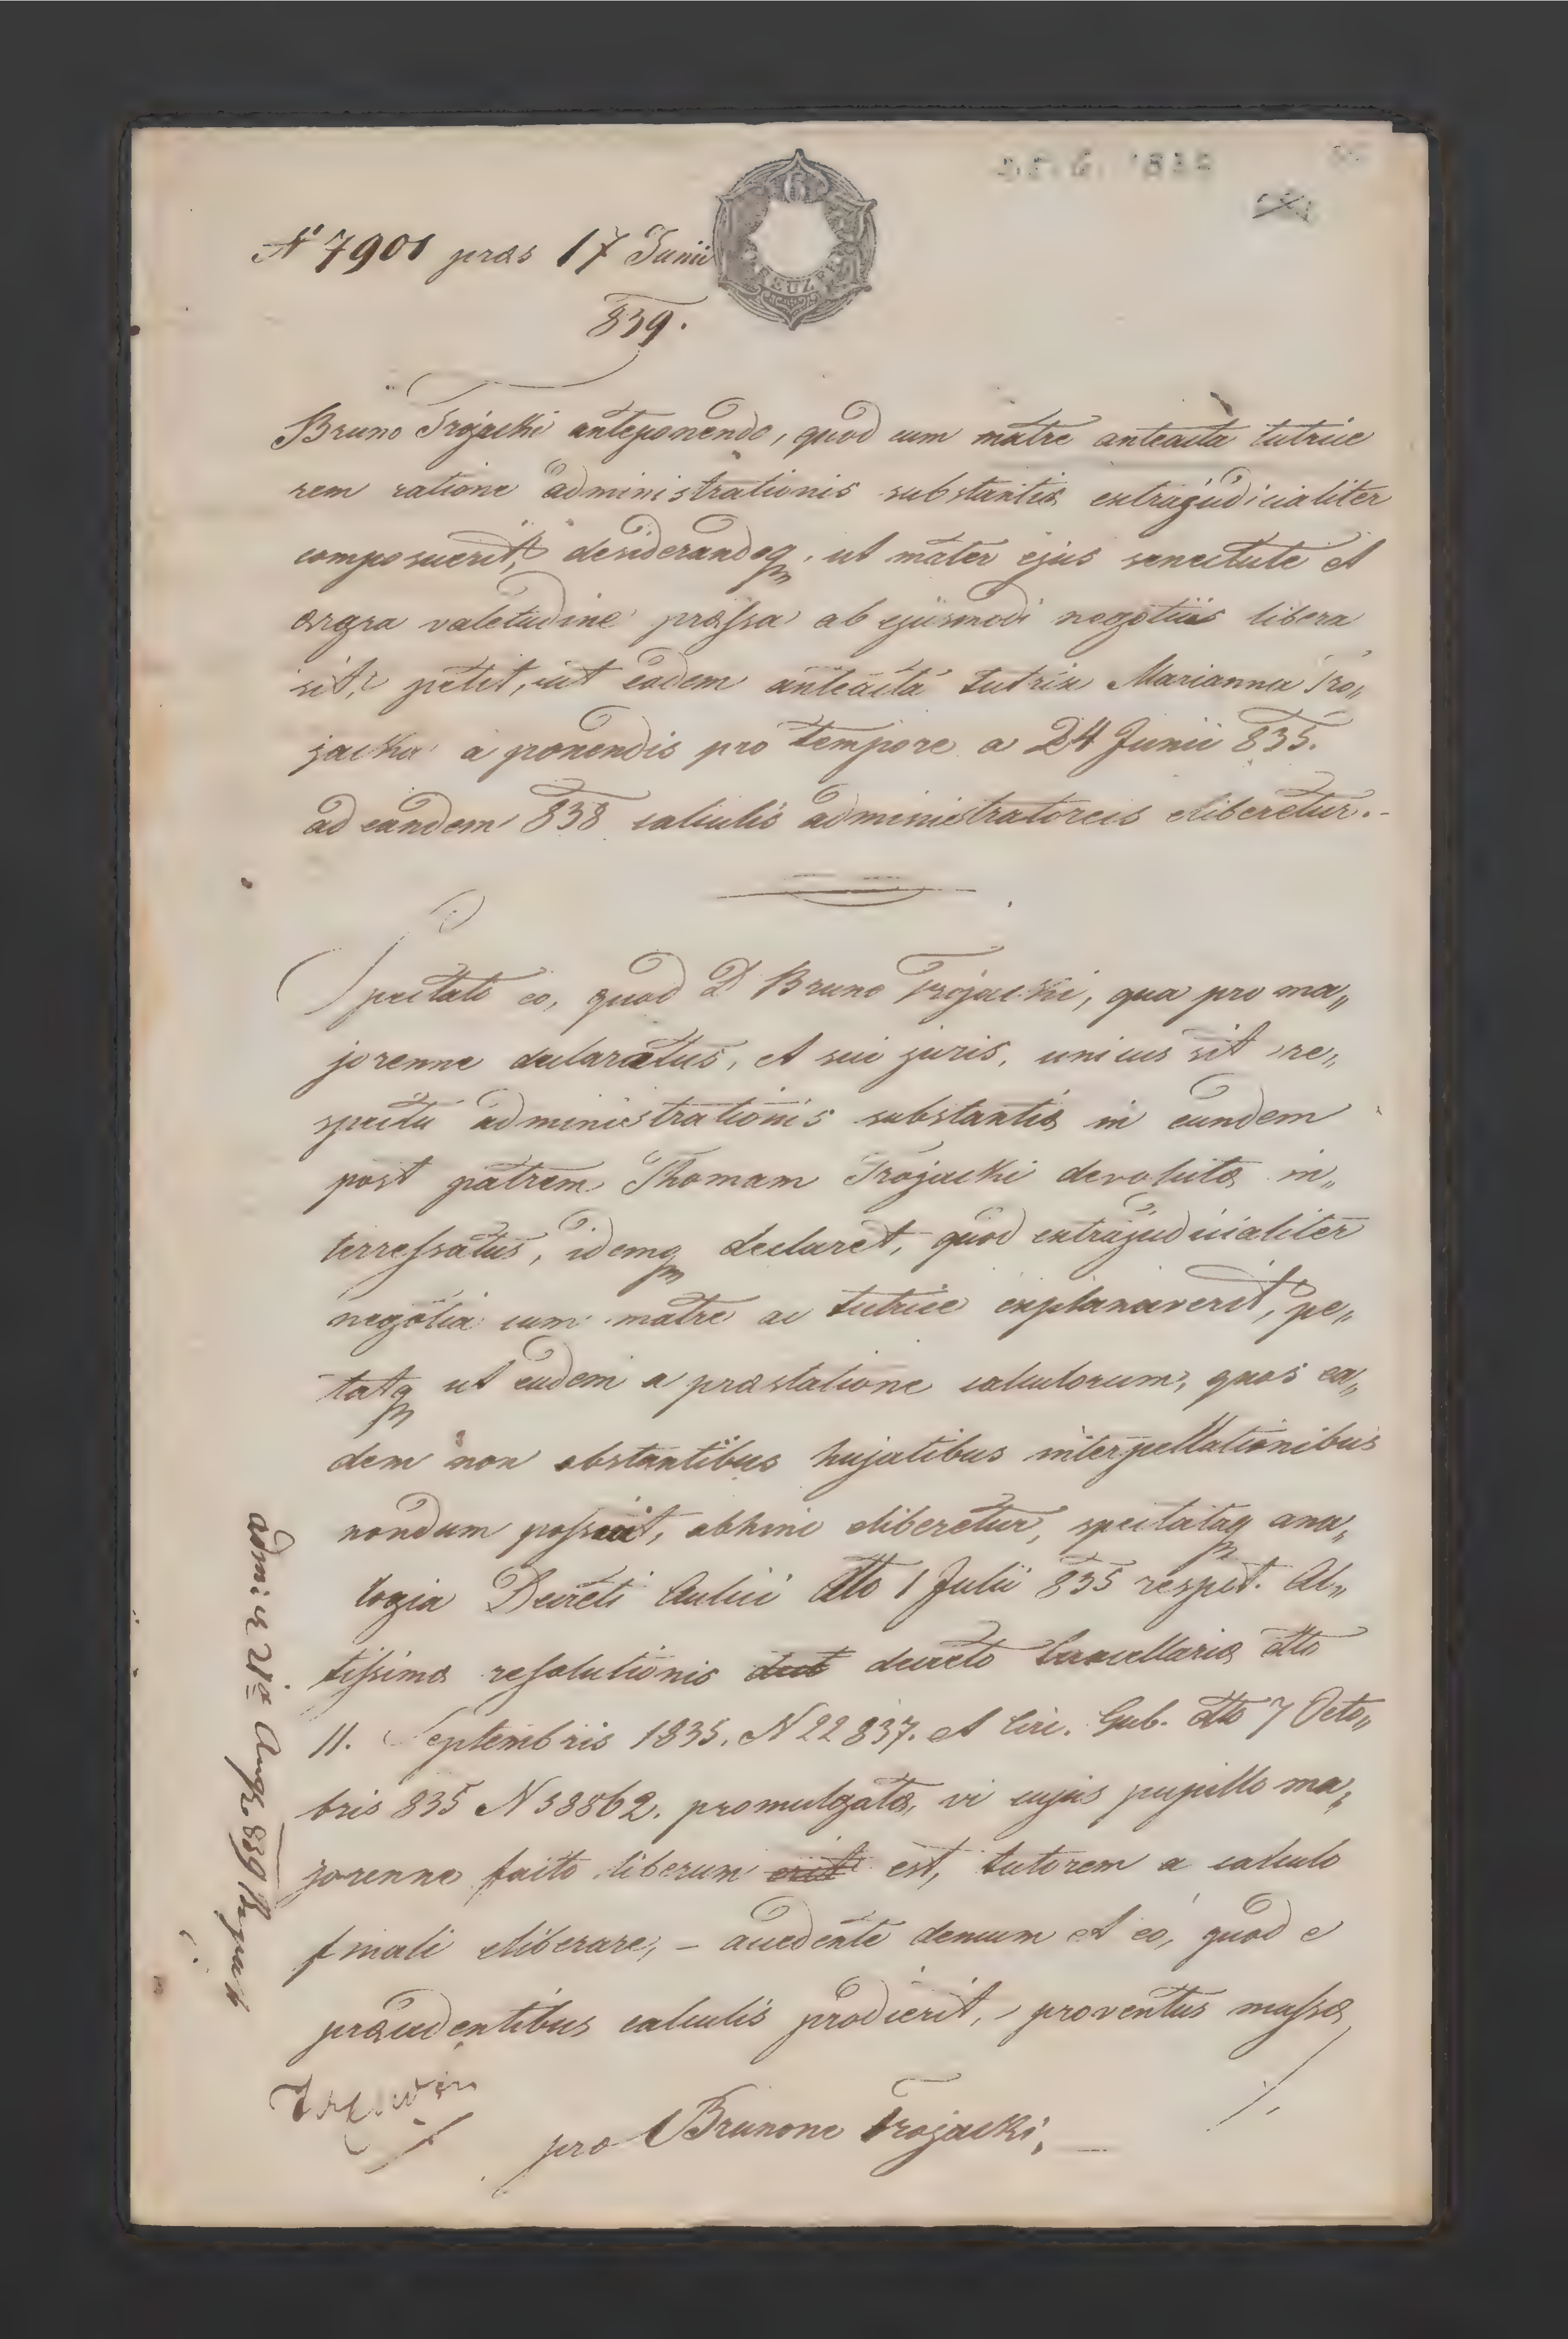 N 7901 præs 17 Junii
839.
Bruno Trojacki anteponendo, quod cum matre anteacta tutrice
rem ratione administrationis substantiæ extrajudicialiter
composuerit, desiderandoq, ut mater ejus senectute et
ægra valetudine præssa ab ejusmodi negotiis libera
sit, petit, ut eadem anteacta tutrix Marianna Tro„
jacka a ponendis pro tempore a 24 Junii 835.
ad eandem 838 calculis administratoreis eliberetur.-
Spectato eo, quod D Bruno Trojacki, qua pro ma„
jorenne declaratus, et sui juris, unicus sit re„
spectu administrationis substantiæ in eundem
post patrem Thomam Trojacki devolutæ in„
terressatus, idemq declaret, quod extrajudicialiter
negotia cum matre ac tutrice explanaverit, pe„
tatq ut eadem a præstatione calculorum, quos ea„
dem non obstantibus hujatibus interpellationibus
nondum possuit, abhinc eliberetur, spectataq ana„
logia Decreti Aulici dto 1 Julii 835 respct. Al„
tissimæ resolutionis decreto Cancellariæ dto
11. Septembris 1835. N 22837. et Circ. Gub. dto 7 Octo„
bris 835 N 58862. promulgatæ, vi cujus pupillo ma„
jorenne facto liberum est, tutorem a calculo
finali eliberare, – accedente demum et eo, quod e
præcedentibus calculis prodierit, proventus massæ
pro Brunone Trojacki, –
839